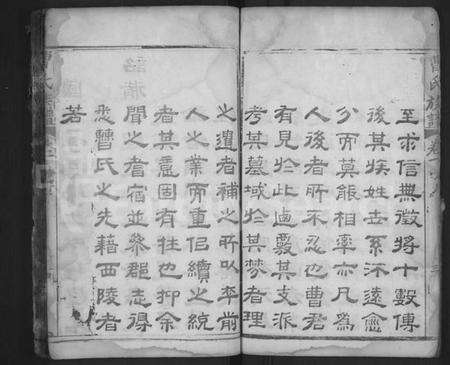 曹氏族譜
至求信無徵將十數傳
後其族姓系遠愈
分而莫能相率亦凡為
人後者所不忍也曹君
有見於此遍覈其支派
考其墓域於其者理
之遺者補之所以率前
人之業而重侶續之統
者其意固有在也抑余
聞之耆宿並參郡志得
悉曹氏之先藉西陵者
若